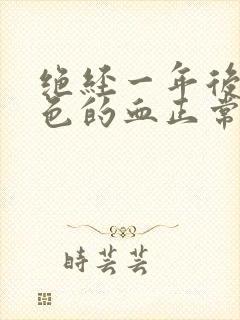 绝经一年後
色的血正常
時芸芸